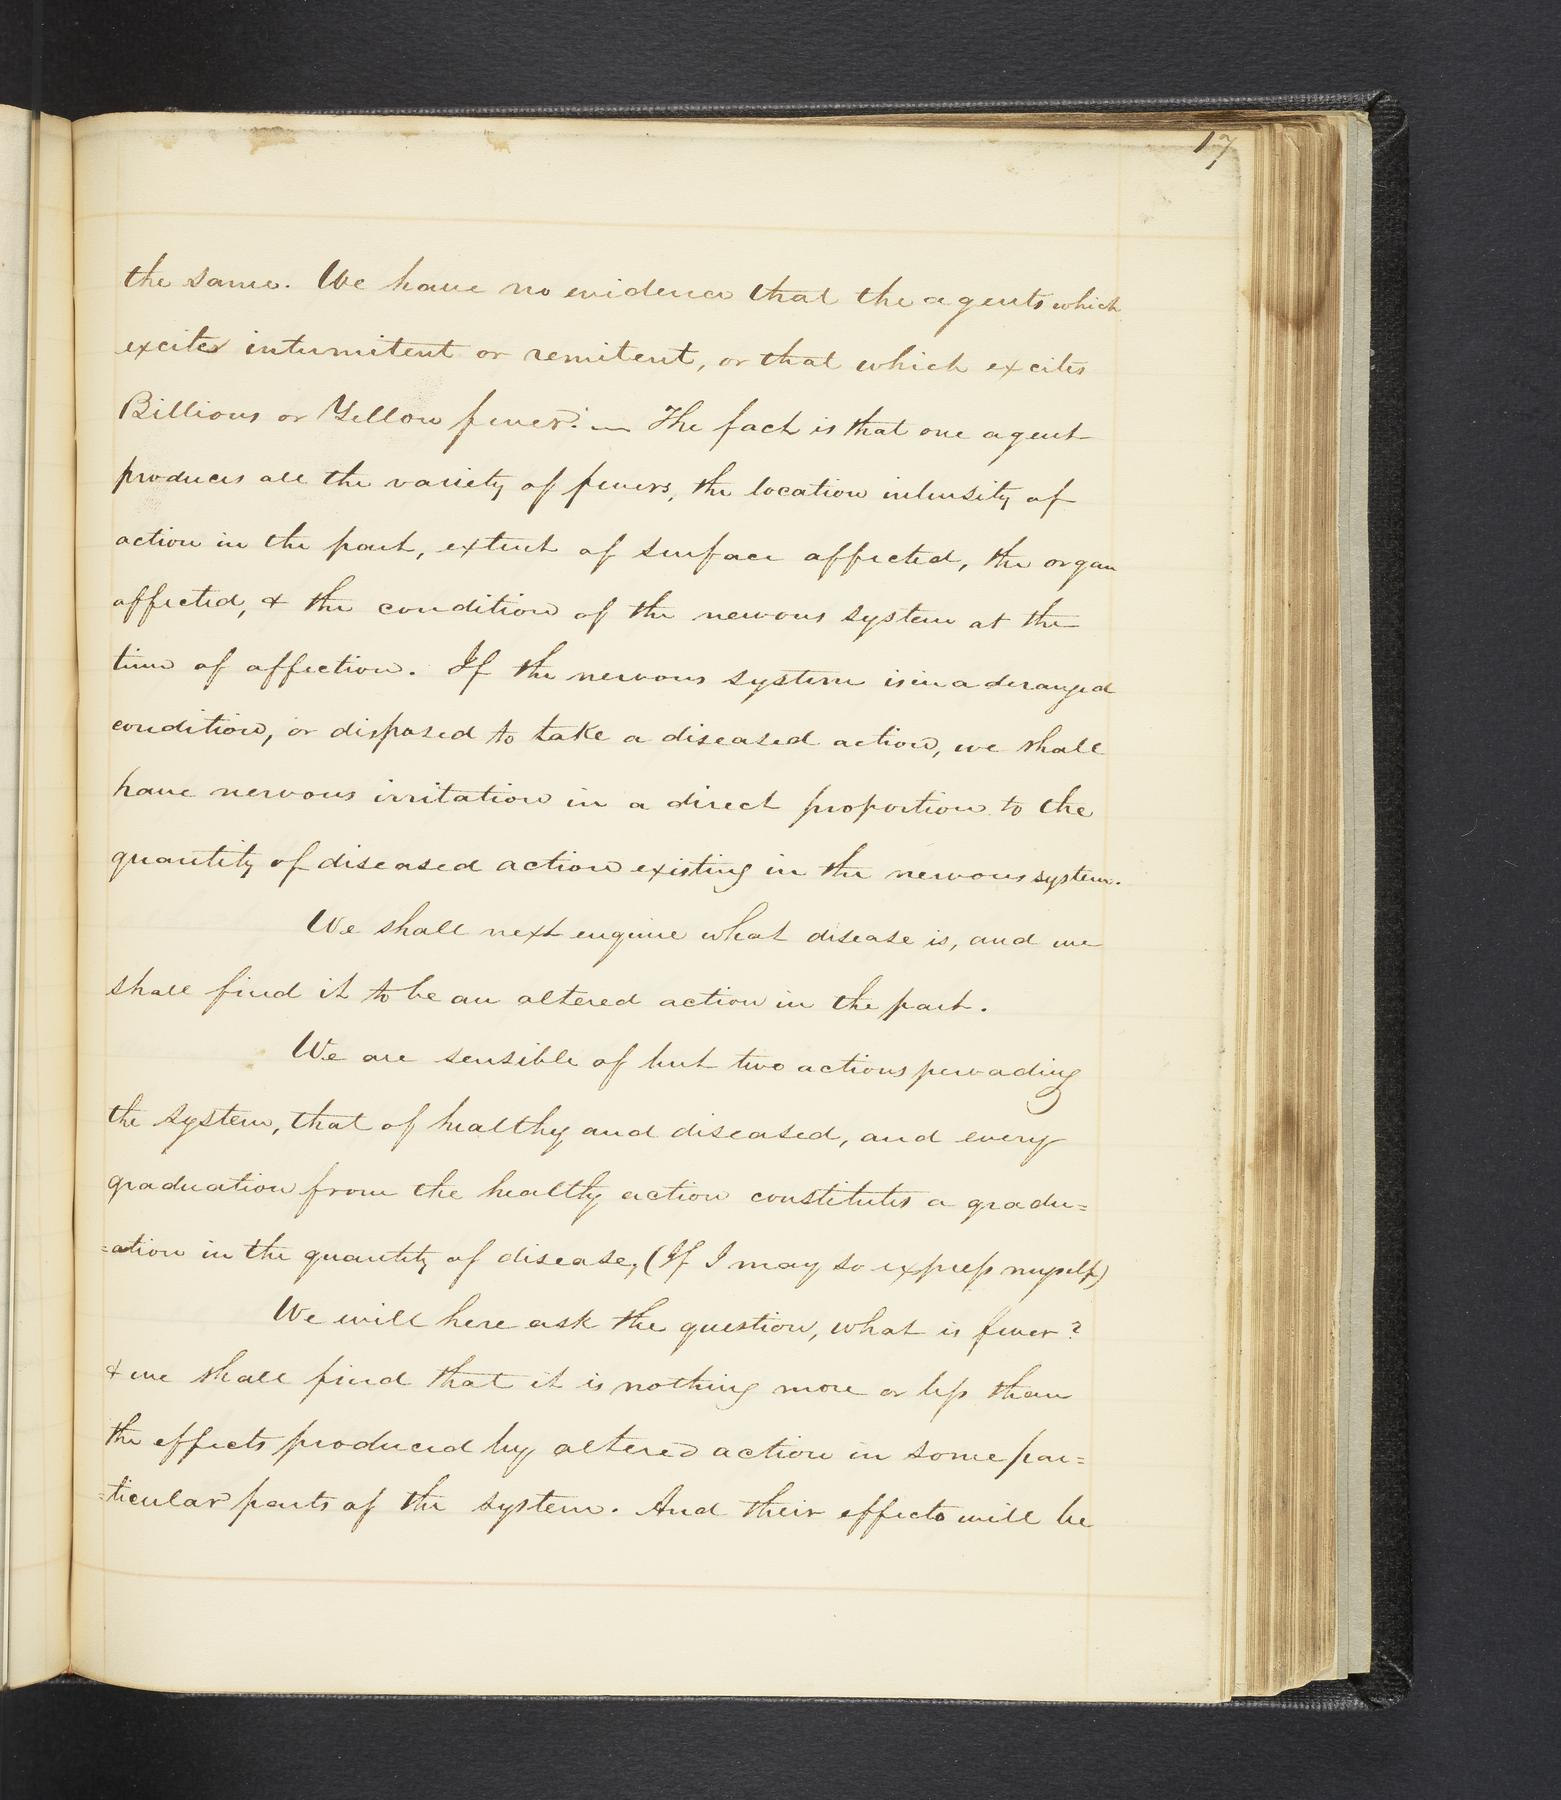 17
the same. We have no evidence that the agents which
excites intumitent or remitent, or that which excites
Billious or Yellow fever. — The fact is that one agent
produces all the variety of fevers, the location intensity of
action in the part, extent of surface affected, the organ
affected, & the condition of the nervous system at the
time of affection. If the nervous system is in a deranged
condition, or disposed to take a diseased action, we shall
have nervous irritation in a direct proportion to the
quantity of diseased action existing in the nervous system.
We shall next enquire what disease is, and we
shall find it to be an altered action in the part.
We are sensible of but two actions pervading
the system, that of healthy and diseased, and every
graduation from the healthy action constitutes a gradu=
=ation in the quantity of disease, (If I may so express myself)
We will here ask the question, what is fever?
& we shall find that it is nothing more or less than
the effects produced by altered action in some par=
=ticular parts of the system. And their effects will be